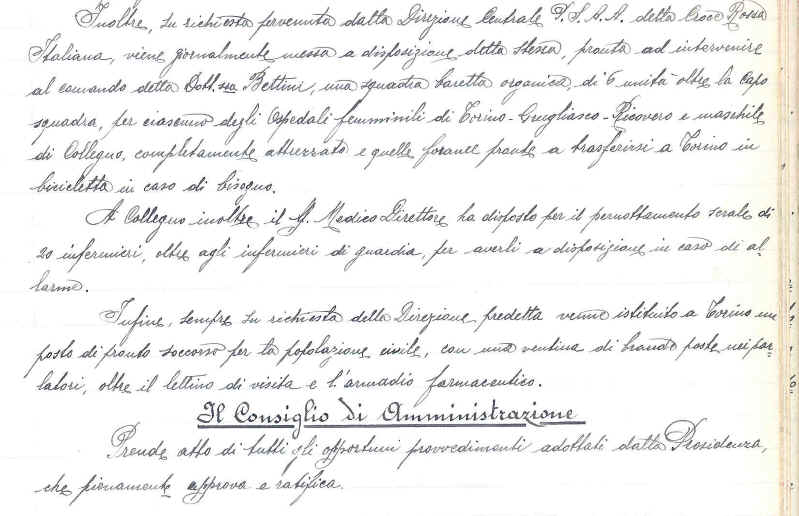 Inoltre, su richiesta pervenuta dalla Direzione Centrale P.S.A.A. della Croce Rossa
Italiana, viene giornalmente messa a disposizione della stessa, pronta ad intervenire
al comando della Dott.ssa Bettini, una squadra baretta organica, di 6 unità oltre la capo
squadra, per ciascuno degli Ospedali femminili di Torino-Grugliasco-Ricovero e maschile
di Collegno, completamente attrezzato e quelle foranee pronte a trasferirsi a Torino in
bicicletta in caso di bisogno.
A Collegno inoltre il ff. Medico Direttore ha disposto per il pernottamento serale di
20 infermieri, oltre agli infermieri di guardia, per averli a disposizione in caso di al-
larme.
Infine, sempre su richiesta della Direzione predetta venne istituito a Torino un
posto di pronto soccorso per la popolazione civile, con una ventina di brande poste nei par-
latori, oltre il lettino di visita e l'armadio farmaceutico.
Il Consiglio di Amministrazione
Prende atto di tutti gli opportuni provvedimenti adottati dalla Presidenza,
che pienamente approva e ratifica.